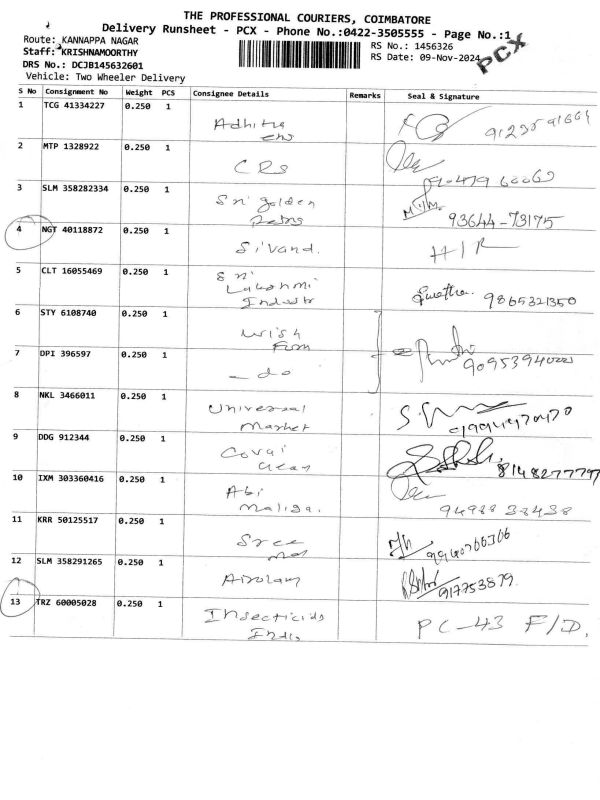 THE PROFESSIONAL COURIERS, COIMBATORE
Delivery Runsheet - PCX - Phone No.:0422-3505555 - Page No.:1
PCX
Route: KANNAPPA NAGAR
RS No.: 1456326
Staff: KRISHNAMOORTHY
RS Date: 09-Nov-2024
DRS No.: DCJB145632601
Vehicle: Two Wheeler Delivery
S No Consignment No Weight PCS Consignee Details Remarks Seal & Signature
1 TCG 41334227 0.250 1
Adhitya
2 MTP 1328922 0.250 1
CRS
3 SLM 358282334 0.250 1
Sri golden
93644-73175
4 NGT 40118872 0.250 1
Sivand.
5 CLT 16055469 0.250 1
Sri
Lakshmi
Industr
Swetha 9865321350
6 STY 6108740 0.250 1
Wish
7 DPI 396597 0.250 1
- do
8 NKL 3466011 0.250 1
Universal
Market
9 DDG 912344 0.250 1
Covai
Gears
10 IXM 303360416 0.250 1
Abi
Maliga.
94988 38438
11 KRR 50125517 0.250 1
Sree
12 SLM 358291265 0.250 1
13 TRZ 60005028 0.250 1
Insecticids
India
PC-43 F/D.